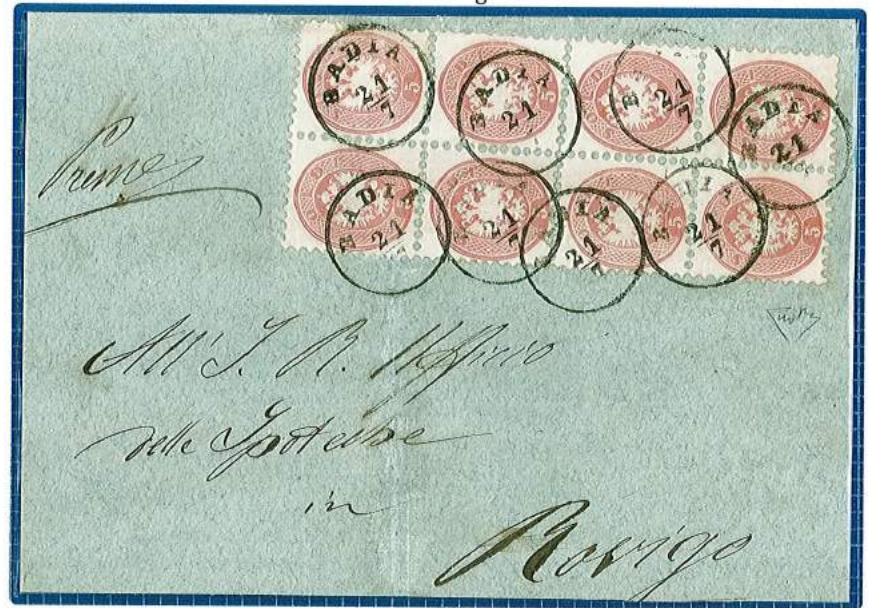 BADIA 21/7
BADIA 21
B 21/7
BADIA 21
BADIA 21/
21/7
IA 21/7
BADIA 21/7
SOLDI 5
Preme
All' I. R. Uffizio
delle Ipoteche
in
Rovigo